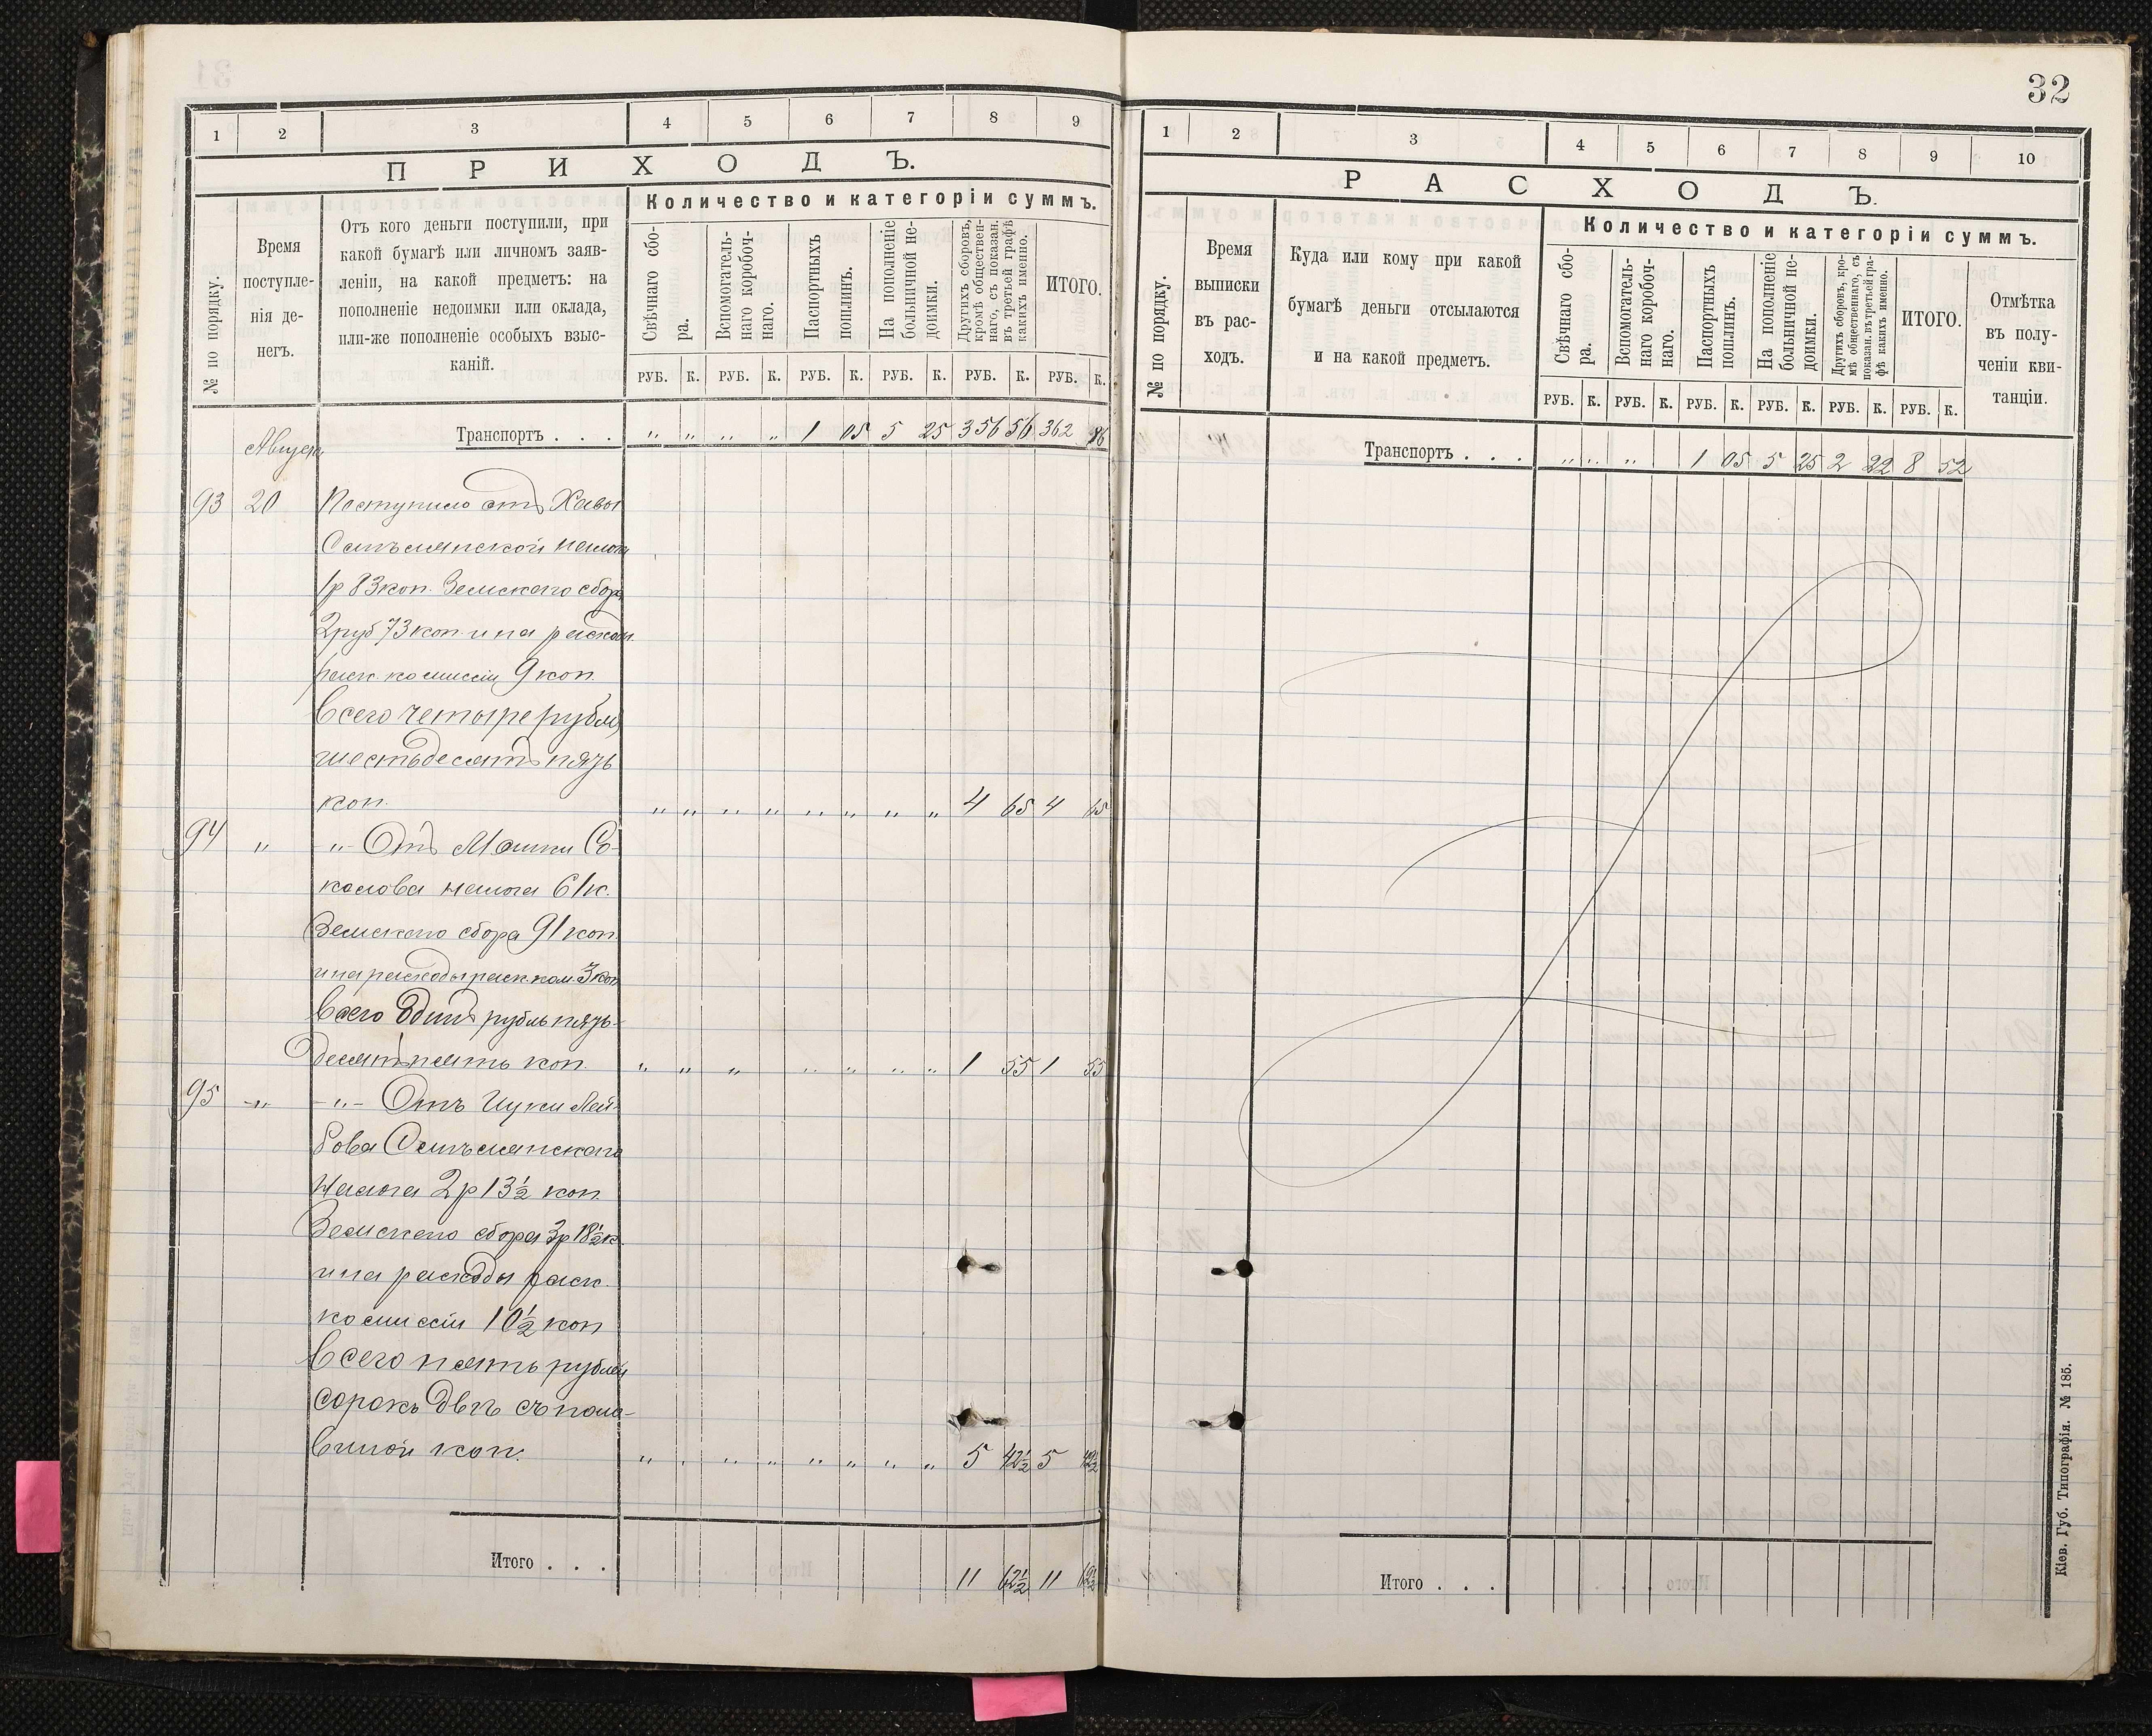 32
1 2 3 4 5 6 7 8 9
ПРИХОДЪ.
№ по порядку.
Время
поступле-
нія де-
негъ.
Отъ кого деньги поступили, при
какой бумагѣ или личномъ заяв-
леніи, на какой предметъ: на
пополненіе недоимки или оклада,
или-же пополненіе особыхъ взыс-
каній.
Количество и категоріи суммъ.
Свѣчнаго сбо-
ра.
Вспомогатель-
наго коробоч-
наго.
Паспортныхъ
пошлинъ.
На пополненіе
больничной не-
доимки.
Другихъ сборовъ,
кромѣ обществен-
наго, съ показан.
въ третьей графѣ
какихъ именно.
ИТОГО.
РУБ. К. РУБ. К. РУБ. К. РУБ. К. РУБ. К. РУБ. К.
Транспортъ . . . „ „ „ „ 1 05 5 25 356 56 362 86
Августа
93 20 Поступило отъ Хавы
налога
1р 83 коп. Земскаго сбора
2 руб 73 коп. и на расходы
раск. комиссіи 9 коп.
Всего четыре рубля
шестьдесятъ пять
коп. „ „ „ „ „ „ „ „ 4 65 4 65
94 „ -„- Отъ Мошки Со-
колова налога 61 к.
Земскаго сбора 91 коп.
и на расходы раск. ком. 3 коп
Всего Одинъ рубль пять-
десятъ пять коп. „ „ „ „ „ „ „ 1 55 1 55
95 -„- -„- Отъ Ицки Лей-
бова
Налога 2р 13½ коп.
Земскаго сбора 3р 18½ к.
и на расходы раск.
комиссіи 10½ коп
Всего пять рублей
сорокъ двѣ съ поло-
виной коп. „ „ „ „ „ „ „ „ 5 42½ 5 42½
Итого . . . 11 62½ 11 62½
1 2 3 4 5 6 7 8 9 10
РАСХОДЪ.
№ по порядку.
Время
выписки
въ рас-
ходъ.
Куда или кому при какой
бумагѣ деньги отсылаются
и на какой предметъ.
Количество и категоріи суммъ.
Свѣчнаго сбо-
ра.
Вспомогатель-
наго коробоч-
наго.
Паспортныхъ
пошлинъ.
На пополненіе
больничной не-
доимки.
Другихъ сборовъ, кро-
мѣ общественнаго, съ
показан. въ третьей гра-
фѣ какихъ именно.
ИТОГО.
Отмѣтка
въ полу-
ченіи кви-
танціи.
РУБ. К. РУБ. К. РУБ. К. РУБ. К. РУБ. К. РУБ. К.
Транспортъ . . . „ „ „ 1 05 5 25 2 22 8 52
Итого . . .
Кіев. Губ. Типографія. № 185.